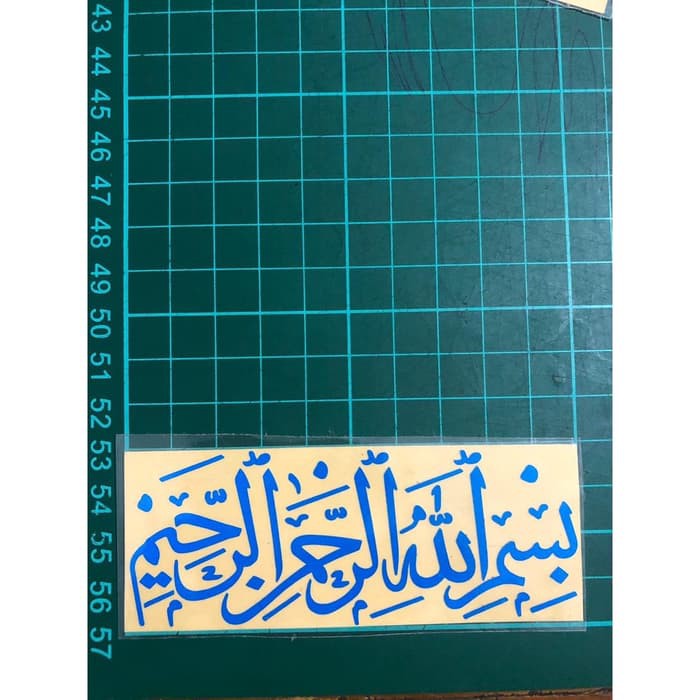 43
44
45
46
47
48
49
50
51
52
53
54
55
56
57
بِسْمِ اللّٰهِ الرَّحْمٰنِ الرَّحِيْمِ